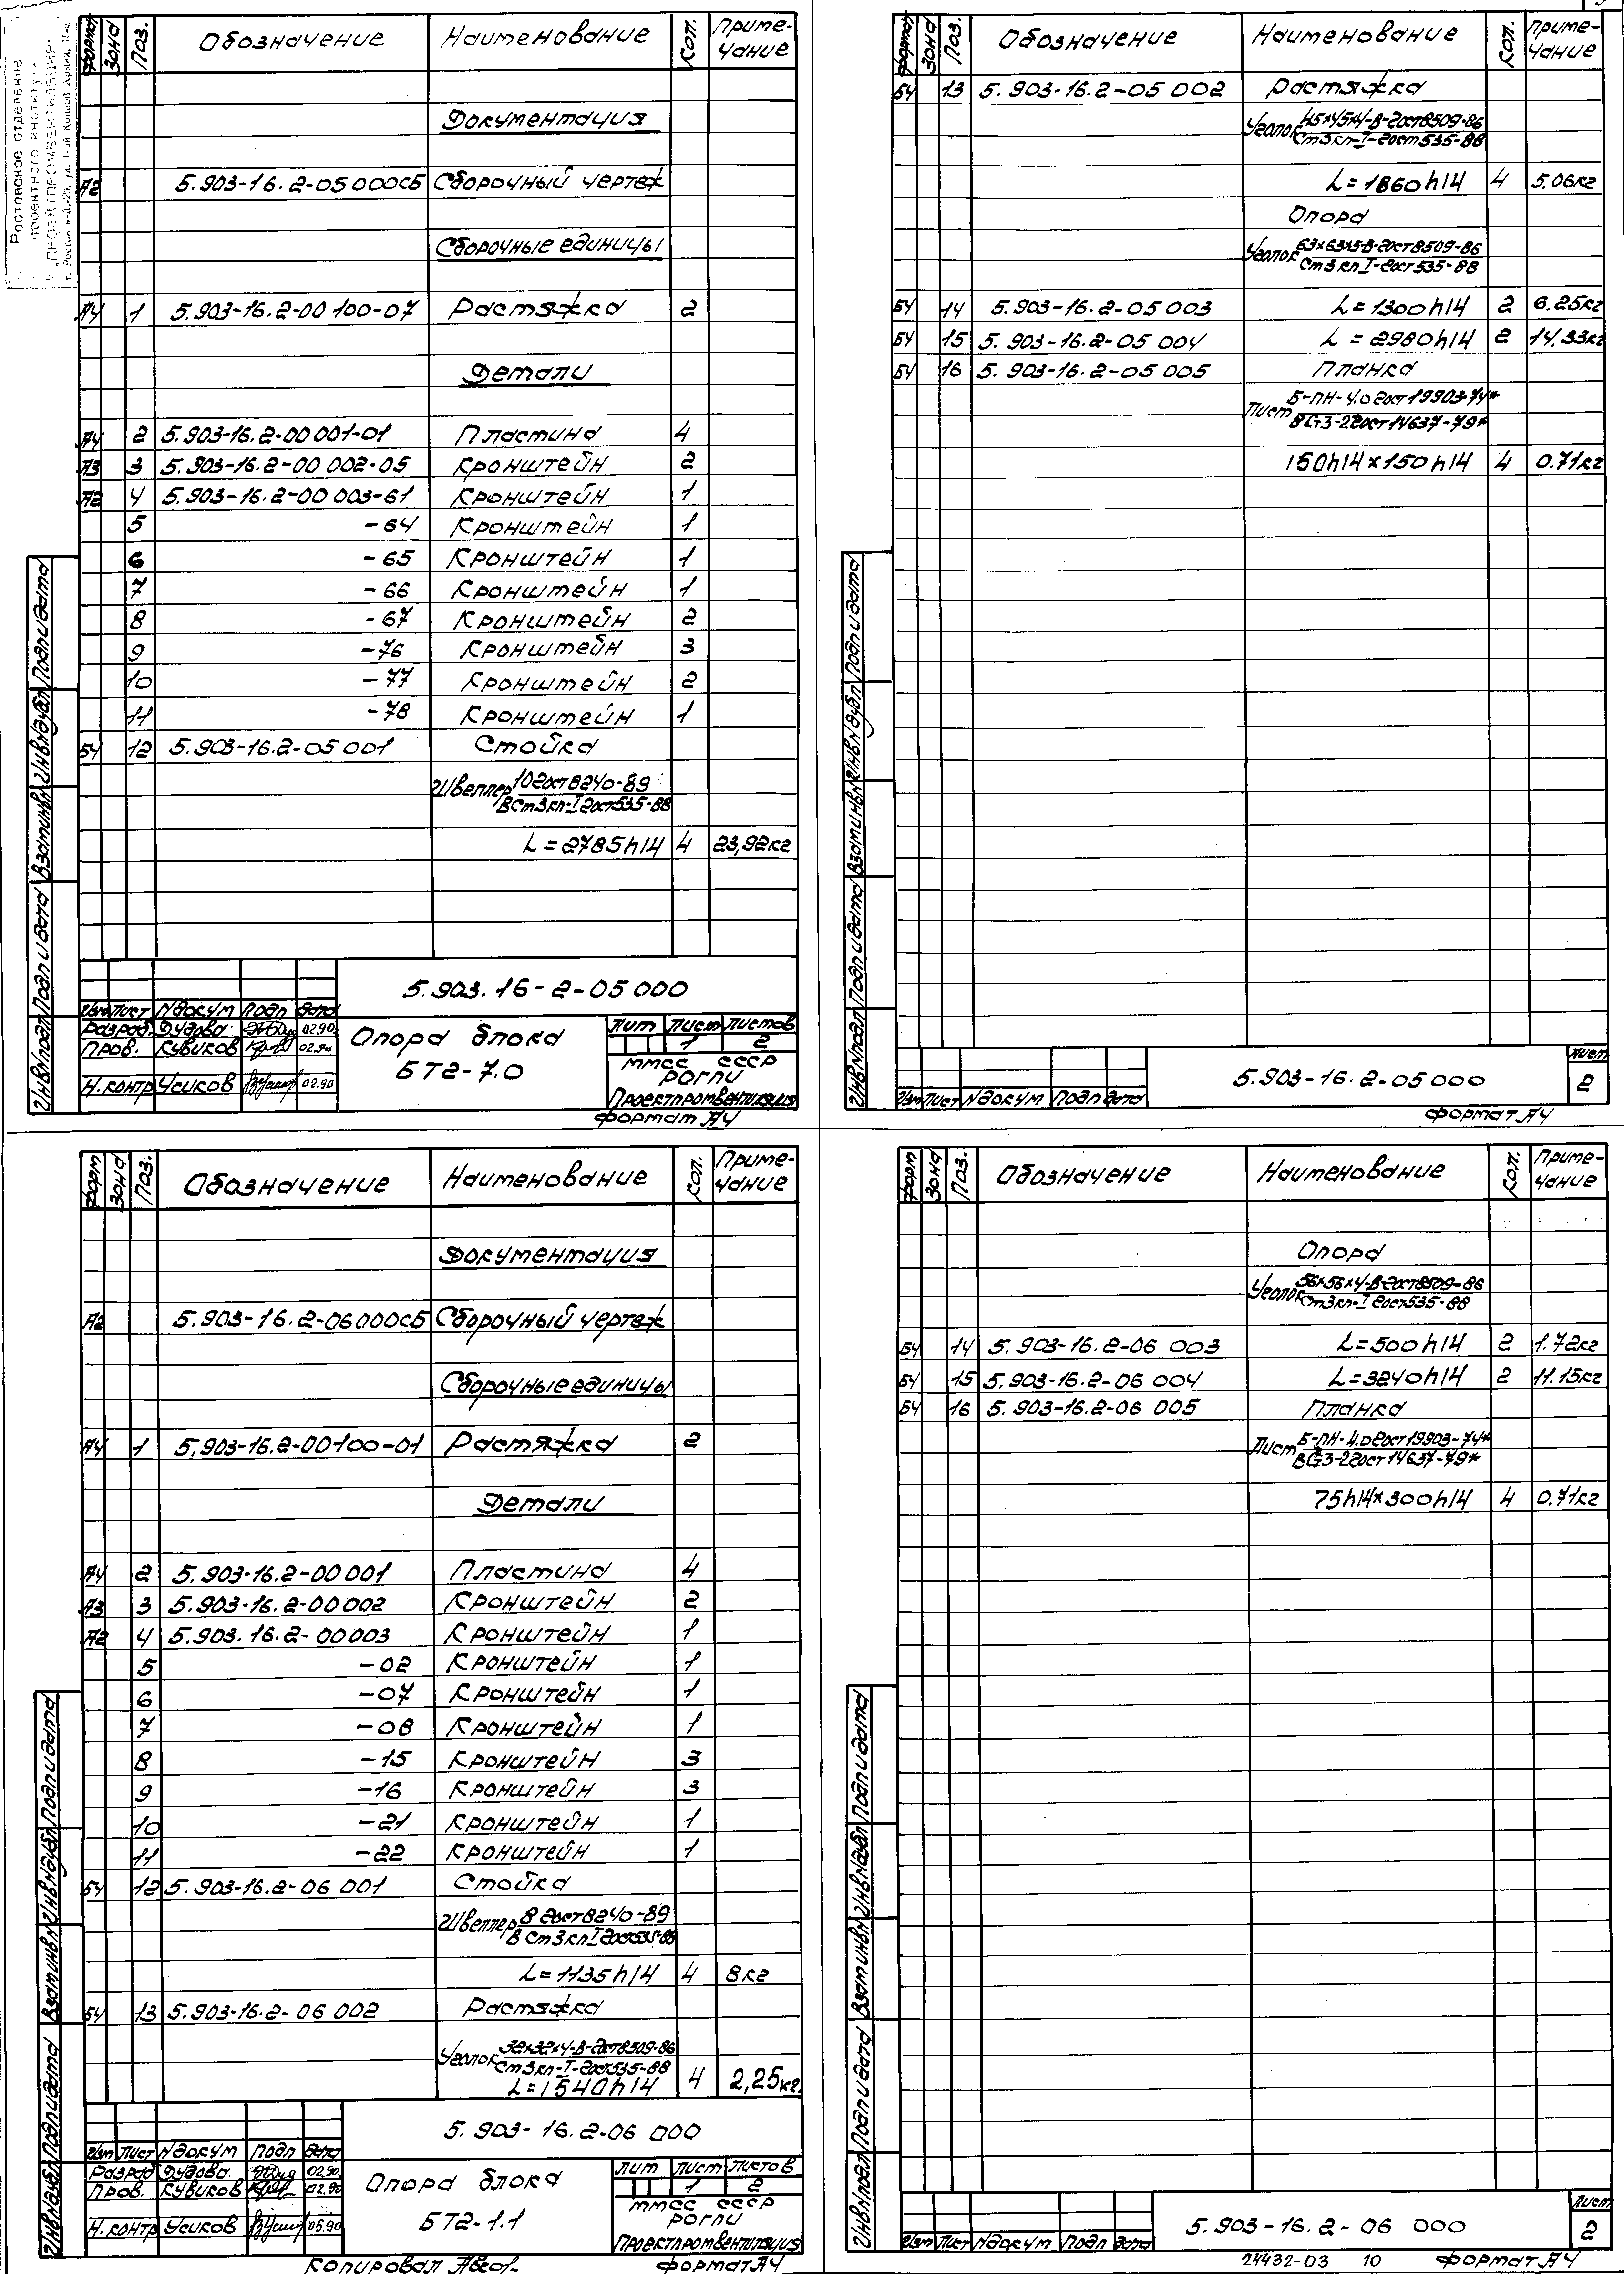 Ростовское отделение
проектного института
"ПРОЕКТПРОМВЕНТИЛЯЦИЯ"
Формат Зона Поз. Обозначение Наименование Кол. Приме-чание
Документация
А2 5.903-16.2-05 000СБ Сборочный чертеж
Сборочные единицы
А4 1 5.903-16.2-00 100-07 Растяжка 2
Детали
А4 2 5.903-16.2-00 001-01 Пластина 4
А3 3 5.903-16.2-00 002-05 Кронштейн 2
А2 4 5.903-16.2-00 003-61 Кронштейн 1
5 -64 Кронштейн 1
6 -65 Кронштейн 1
7 -66 Кронштейн 1
8 -67 Кронштейн 2
9 -76 Кронштейн 3
10 -77 Кронштейн 2
11 -78 Кронштейн 1
БЧ 12 5.903-16.2-05 001 Стойка
Швеллер 10 гост 8240-89
ВСт3кп-I гост 535-88
L=2785h14 4 23,92кг
Инв№подл Подп и дата Взам инв№ Инв№дубл Подп и дата
5.903.16-2-05 000
Изм Лист №докум Подп Дата
Разраб. Дудова 02.90
Пров. Кувиков 02.90
Н.контр Усиков 02.90
Опора блока
БТ2-7.0
Лит Лист Листов
1 2
ММСС СССР
РОГПИ
Проектпромвентиляция
Формат А4
Формат Зона Поз. Обозначение Наименование Кол. Приме-чание
БЧ 13 5.903-16.2-05 002 Растяжка
Уголок 45×45×4-В-гост 8509-86
Ст3кп-I-гост 535-88
L=1860h14 4 5.06кг
Опора
Уголок 63×63×5-В-гост 8509-86
Ст3кп I-гост 535-88
БЧ 14 5.903-16.2-05 003 L=1300h14 2 6.25кг
БЧ 15 5.903-16.2-05 004 L=2980h14 2 14.33кг
БЧ 16 5.903-16.2-05 005 Планка
Лист Б-ПН-4.0 гост 19903-74*
ВСт3-2 гост 14637-79*
150h14×150h14 4 0.71кг
Инв№подл Подп и дата Взам инв№ Инв№дубл Подп и дата
Изм Лист №докум Подп Дата
5.903-16.2-05 000
Лист
2
Формат А4
Форм Зона Поз. Обозначение Наименование Кол. Приме-чание
Документация
А2 5.903-16.2-06000СБ Сборочный чертеж
Сборочные единицы
А4 1 5.903-16.2-00100-01 Растяжка 2
Детали
А4 2 5.903-16.2-00001 Пластина 4
А3 3 5.903-16.2-00002 Кронштейн 2
А2 4 5.903.16.2-00003 Кронштейн 1
5 -02 Кронштейн 1
6 -07 Кронштейн 1
7 -08 Кронштейн 1
8 -15 Кронштейн 3
9 -16 Кронштейн 3
10 -21 Кронштейн 1
11 -22 Кронштейн 1
БЧ 12 5.903-16.2-06 001 Стойка
Швеллер 8 гост 8240-89
ВСт3кп I гост 535-88
L=1135h14 4 8кг
БЧ 13 5.903-16.2-06 002 Растяжка
Уголок 32×32×4-В-гост 8509-86
Ст3кп-I-гост 535-88
L=1540h14 4 2,25кг.
Инв№дубл Подп и дата Взам инв№ Инв№дубл Подп и дата
5.903-16.2-06 000
Изм Лист №докум Подп Дата
Разраб Дудова 02.90
Пров. Кувиков 02.90
Н.контр Усиков 05.90
Опора блока
БТ2-1.1
Лит Лист Листов
1 2
ММСС СССР
РОГПИ
Проектпромвентиляция
Копировал
Формат А4
Форм Зона Поз. Обозначение Наименование Кол. Приме-чание
Опора
Уголок 56×56×4-В-гост 8509-86
Ст3кп-I гост 535-88
БЧ 14 5.903-16.2-06 003 L=500h14 2 1.72кг
БЧ 15 5.903-16.2-06 004 L=3240h14 2 11.15кг
БЧ 16 5.903-16.2-06 005 Планка
Лист Б-ПН-4.0 гост 19903-74*
ВСт3-2 гост 14637-79*
75h14×300h14 4 0.71кг
Инв№подл Подп и дата Взам инв№ Инв№дубл Подп и дата
Изм Лист №докум Подп Дата
5.903-16.2-06 000
Лист
2
24432-03 10 Формат А4